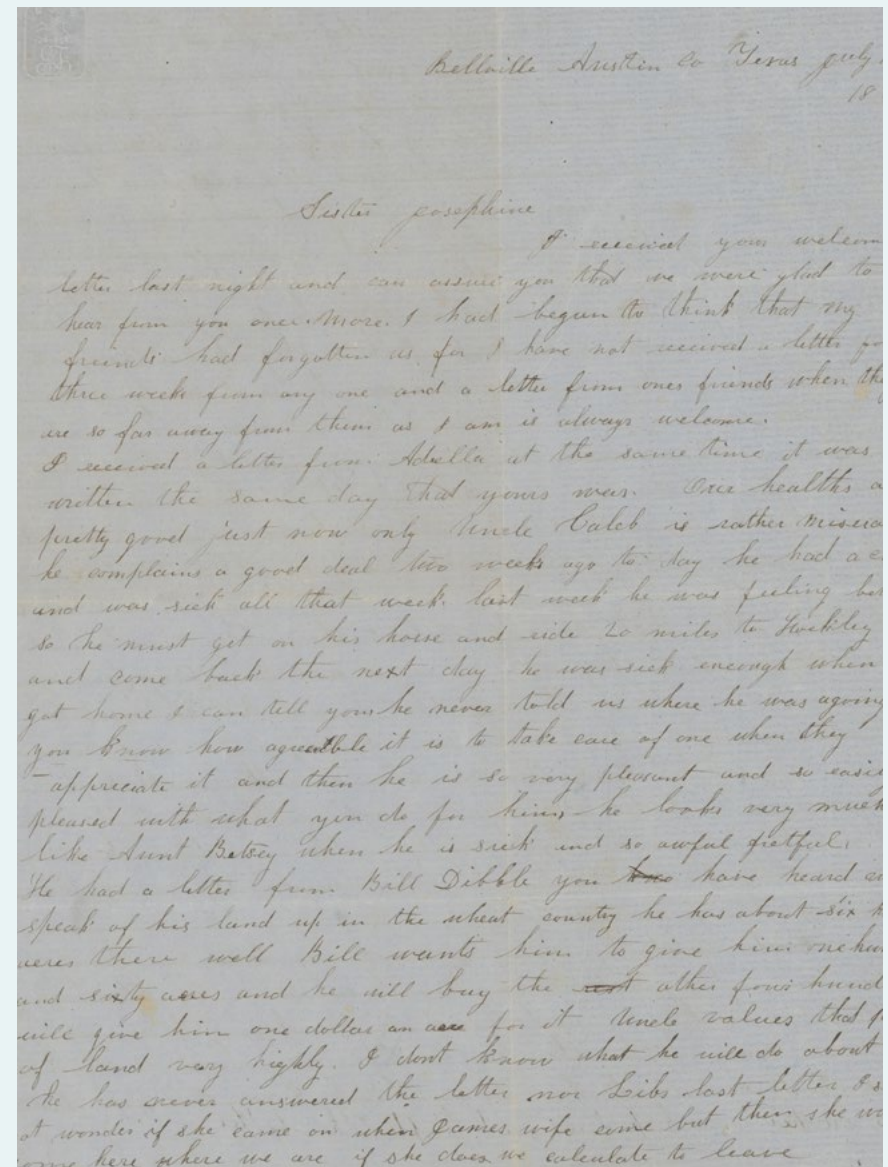 Bellville Austin Co Texas July
18
Sister Josephine
I received your welcom
letter last night and can assure you that we were glad to
hear from you once more. I had begun to think that my
friends had forgotten us for I have not received a letter for
three week from any one and a letter from ones friends when the
are so far away from them as I am is always welcome.
I received a letter from Adella at the same time it was
written the same day that yours was. Our healths a
pretty good just now only Uncle Caleb is rather misera
he complains a good deal two weeks ago to day he had a c
and was sick all that week. last week he was feeling bet
so he must get on his horse and ride 20 miles to
and come back the next day he was sick enough when
got home I can tell you he never told us where he was agoing
you know how agreeable it is to take care of one when they
appriciate it and then he is so very pleasant and so easily
pleased with what you do for him he looks very much
like Aunt Betsey when he is sick and so awful fretful.
He had a letter from Bill Dibble you have heard
speak of his land up in the wheat country he has about six h
acres there well Bill wants him to give him one hun
and sixty acres and he will buy the rest other four hund
will give him one dollar an acre for it Uncle values that p
of land very highly. I dont know what he will do about
he has never answered the letter nor Libs last letter I s
at wonder if she came on when James wife come but then she wo
come here where we are if she does we calculate to leave